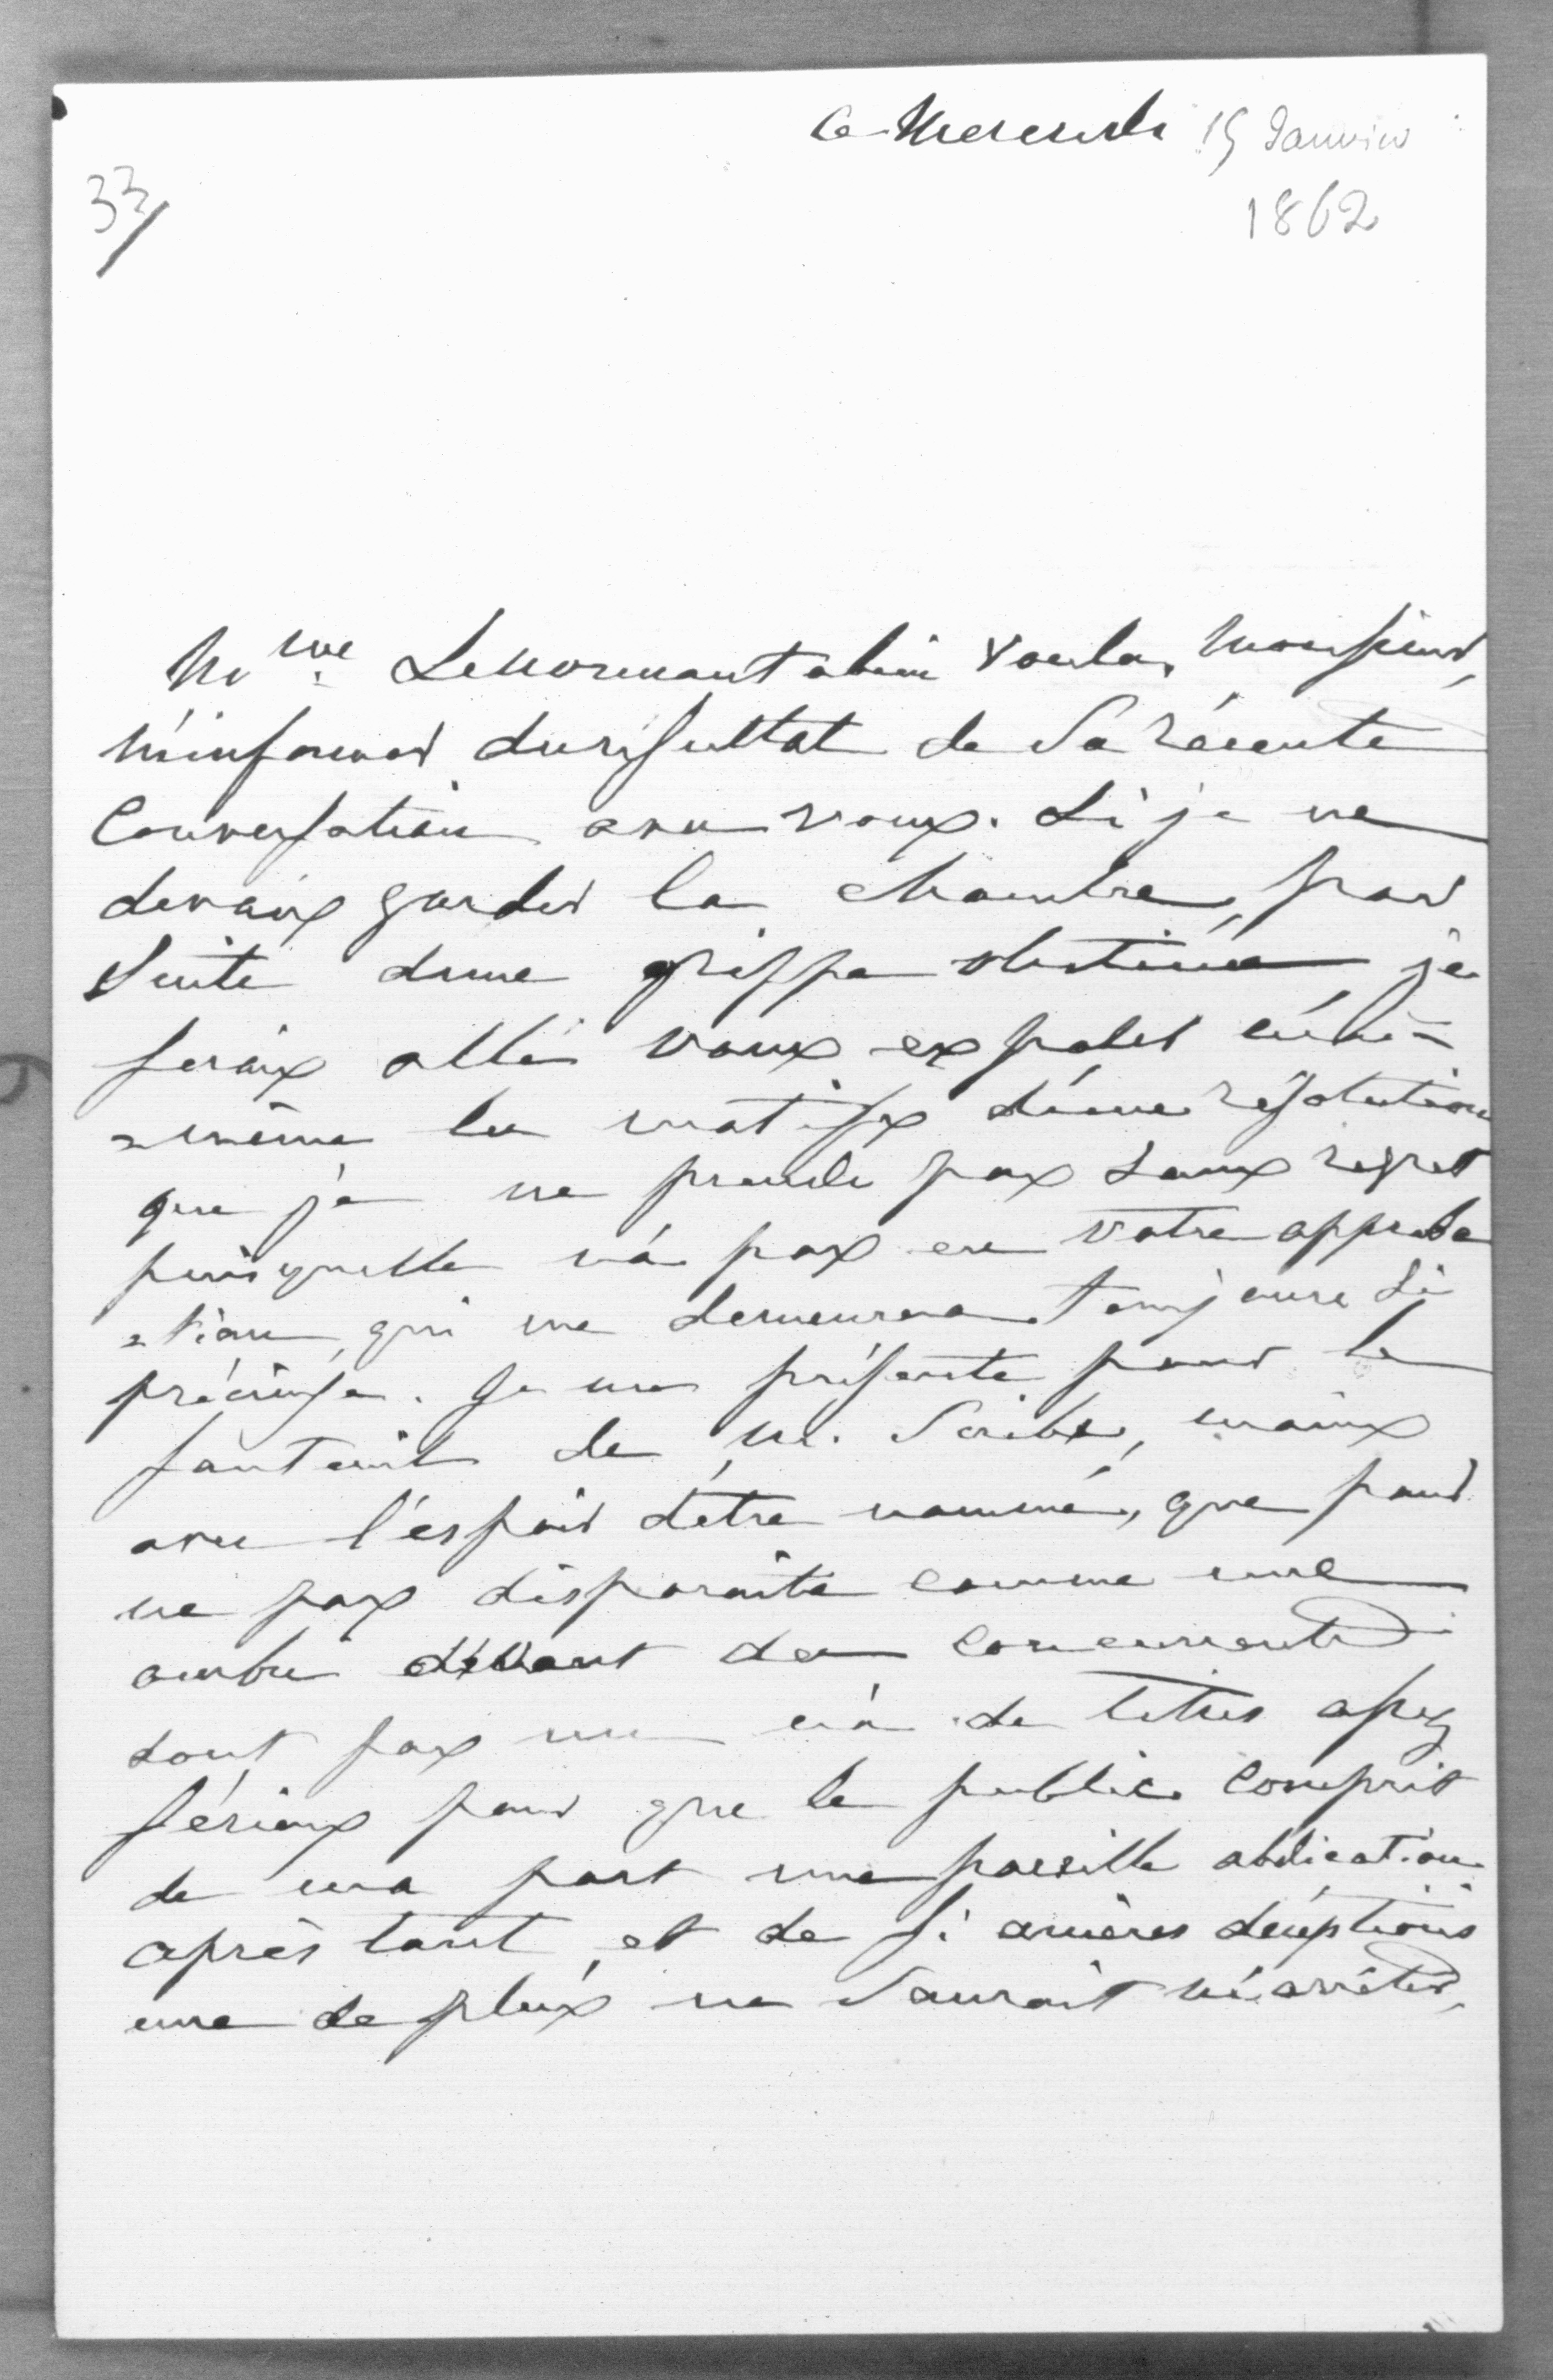 Ce Mercredi 15 Janvier
1862
33/
Mme Lenormant a bien voulu, Monsieur,
m'informer du resultat de sa récente
conversation avec vous. Si je ne
devais garder la chambre, par
suite dune grippe obstinée, je
serais allé vous exposer moi=
=même les motifs d'une résolution
que je ne prends pas sans regret
puisquelle n'a pas eu votre approba
=tion, qui me demeurera toujours si
précieuse. Je me présente pour le
fauteuil de M. Scribe, moins
avec l'espoir d'être nommé, que pour
ne pas disparaitre comme une
ombre devant des concurrents
dont pas un n'a de titres assez
sérieux pour que le public comprit
de ma part une pareille abdication.
après tant et de si amères déceptions
une de plus ne saurait m'arrêter,